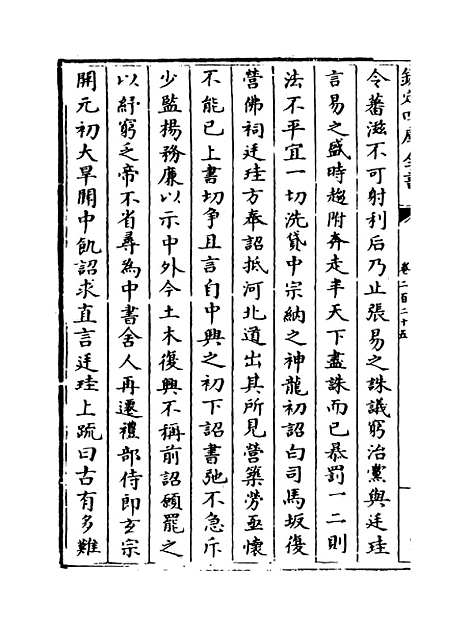 欽定四庫全書
卷二百二十五
令蕃滋不可射利后乃止張易之誅議窮治黨與廷珪
言易之盛時趨附奔走半天下盡誅而已暴罰一二則
法不平宜一切洗貸中宗納之神龍初詔白司馬坂復
營佛祠廷珪方奉詔抵河北道出其所見營築勞亟懷
不能已上書切争且言自中興之初下詔書弛不急斥
少監楊務廉以示中外今土木復興不稱前詔願罷之
以紓窮乏帝不省尋為中書舍人再遷禮部侍郎玄宗
開元初大旱關中飢詔求直言廷珪上疏曰古有多難